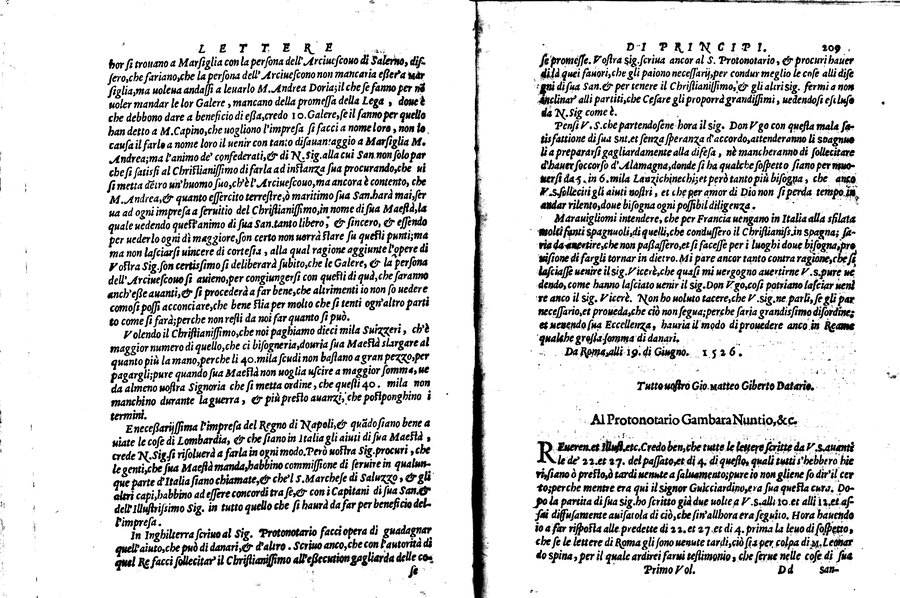 LETTERE
hor si trouano a Marsiglia con la persona dell'Arciuescouo di Salerno, dis-
sero, che fariano, che la persona dell'Arciuescouo non mancaria esser a Mar
siglia, ma voleua andassi a leuarlo M. Andrea Doria; il che se fanno per nō
uoler mandar le lor Galere, mancano della promessa della Lega, doue è
che debbono dare a beneficio di essa, credo 10. Galere, se il fanno per quello
han detto a M. Capino, che uogliono l'impresa si facci a nome loro, non lo
causa il farlo a nome loro il uenir con tanto disauantaggio a Marsiglia M.
Andrea; ma l'animo de' confederati, & di N. Sig. alla cui San. non solo par
che si satisfi al Christianissimo di farla ad instanza sua procurando, che ui
si metta dētro un'huomo suo, ch'è l'Arciuescouo, ma ancora è contento, che
M. Andrea, & quanto essercito terrestre, ò maritimo sua San. harà mai, ser
ua ad ogni impresa a seruitio del Christianissimo, in nome di sua Maestà, la
quale uedendo quest'animo di sua San. tanto libero, & sincero, & essendo
per uederlo ogni dì maggiore, son certo non uorrà stare su questi punti; ma
ma non lasciarsi uincere di cortesia, alla qual ragione aggiunte l'opere di
Vostra Sig. son certissimo si deliberarà subito, che le Galere, & la persona
dell'Arciuescouo si auieno, per congiungersi con questi di quà, che saranno
anch'esse auanti, & si procederà a far bene, che altrimenti io non so uedere
comosi possi acconciare, che bene stia per molto che si tenti ogn'altro parti
to come si farà; perche non resti da noi far quanto si può.
Volendo il Christianissimo, che noi paghiamo dieci mila Suizzeri, ch'è
maggior numero di quello, che ci bisogneria, douria sua Maestà slargare al
quanto più la mano, perche li 40. mila scudi non bastano a gran pezzo, per
pagargli; pure quando sua Maestà non uoglia uscire a maggior somma, ue
da almeno uostra Signoria che si metta ordine, che questi 40. mila non
manchino durante la guerra, & più presto auanzi, che postponghino i
termini.
E necessarijssima l'impresa del Regno di Napoli, & quādo siano bene a
uiate le cose di Lombardia, & che siano in Italia gli aiuti di sua Maestà,
crede N. Sig. si risoluerà a farla in ogni modo. Però uostra Sig. procuri, che
le genti, che sua Maestà manda, habbino commissione di seruire in qualun-
que parte d'Italia siano chiamate, & che'l S. Marchese di Saluzzo, & gli
altri capi, habbino ad essere concordi tra se, & con i Capitani di sua San. &
dell'Illustrissimo Sig. in tutto quello che si haurà da far per beneficio del-
l'impresa.
In Inghilterra scriuo al Sig. Protonotario facci opera di guadagnar
quell'aiuto, che può di danari, & d'altro. Scriuo anco, che con l'autorità di
quel Re facci sollecitar il Christianissimo all'essecution gagliarda delle co-
se
DI PRINCIPI. 209
se promesse. Vostra sig. scriua ancor al S. Protonotario, & procuri hauer
di là quei fauori, che gli paiono necessarij, per condur meglio le cose alli dise
gni di sua San. & per tenere il Christianissimo, & gli altri sig. fermi a non
inclinar alli partiti, che Cesare gli proporrà grandissimi, uedendosi escluso
da N. Sig come è.
Pensi V. S. che partendosene hora il sig. Don Vgo con questa mala sa-
tisfattione di sua Snt. et senza speranza d'accordo, attenderanno li spagnuo
li a prepararsi gagliardamente alla difesa, nè mancheranno di sollecitare
d'hauer soccorso d'Alamagna, donde si ha qualche sospetto siano per muo-
uersi da 5. in 6. mila Lanzichinechi; et però tanto più bisogna, che anco
V. S. solleciti gli aiuti nostri, et che per amor di Dio non si perda tempo in
andar rilento, doue bisogna ogni possibil diligenza.
Marauigliomi intendere, che per Francia uengano in Italia alla sfilata
molti fanti spagnuoli, di quelli, che condussero il Christianiss. in spagna; sa-
ria da auertire, che non passassero, et si facesse per i luoghi doue bisogna, pro
uisione di fargli tornar in dietro. Mi pare ancor tanto contra ragione, che si
lasciasse uenire il sig. Vicerè, che quasi mi uergogno auertirne V. S. pure ue
dendo, come han lasciato uenir il sig. Don Vgo, così potriano lasciar ueni
re ancora il sig. Vicerè. Non ho uoluto tacere, che V. sig. ne parli, se gli par
necessario, et proueda, che ciò non segua; perche saria grandissimo disordine;
et uenendo sua Eccellenza, hauria il modo di prouedere anco in Reame
qualche grossa somma di danari.
Da Roma, alli 19. di Giugno. 1526.
Tutto uostro Gio. Matteo Giberto Datario.
Al Protonotario Gambara Nuntio, &c.
REueren. et Illust. etc. Credo ben, che tutte le lettere scritte da V. S. auanti
le de' 22. et 27. del passato, et di 4. di questo, quali tutti s'hebbero hie
ri, siano ò presto, ò tardi uenute a saluamento; pure io non gliene so dir'il cer
to; perche mentre era qui il Signor Guicciardino, era sua questa cura. Do-
po la partita di sua ho scritto già due uolte a V. S. alli 10 et alli 12. et as-
sai diffusamente auisatola di ciò, che sin'allhora era seguito. Hora hauendo
io a far risposta alle predette di 22. et 27. et di 4. prima la leuo di sospetto,
che se le lettere di Roma gli sono uenute tardi, ciò sia per colpa di M. Leonar
do spina, per il quale ardirei farui testimonio, che serue nelle cose di sua
Primo Vol. Dd san-